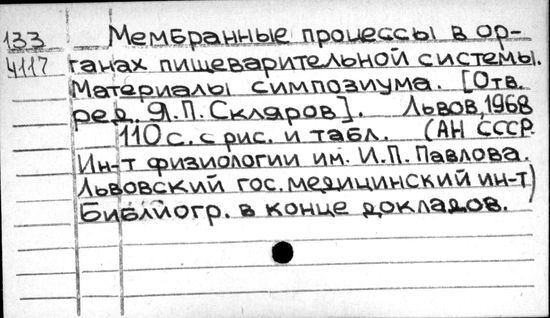 133 Мембранные процессы в ор-
4117 ганах пищеварительной системы.
Материалы симпозиума. [Отв.
ред. Я.П. Скляров]. Львов, 1968
110 с. с рис. и табл. (АН СССР.
Ин-т физиологии им. И.П. Павлова.
Львовский гос. медицинский ин-т)
Библиогр. в конце докладов.